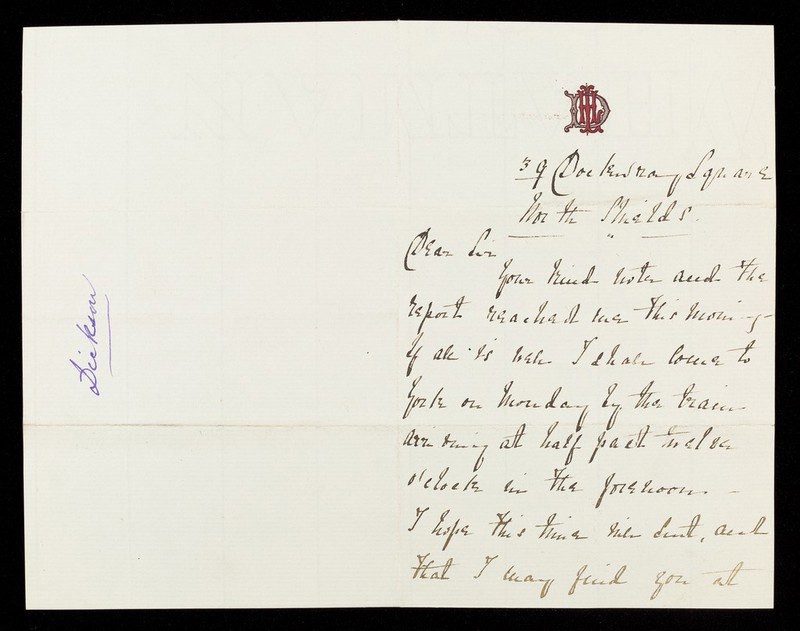 39 Dockwray Square
North Shields.
Dear Sir
Your kind note and the
report reached me this morning -
If all is well I shall come to
York on Monday by the train
arriving at half past twelve
o'clock in the forenoon. -
I hope this time will suit, and
that I may find you at
Dickson